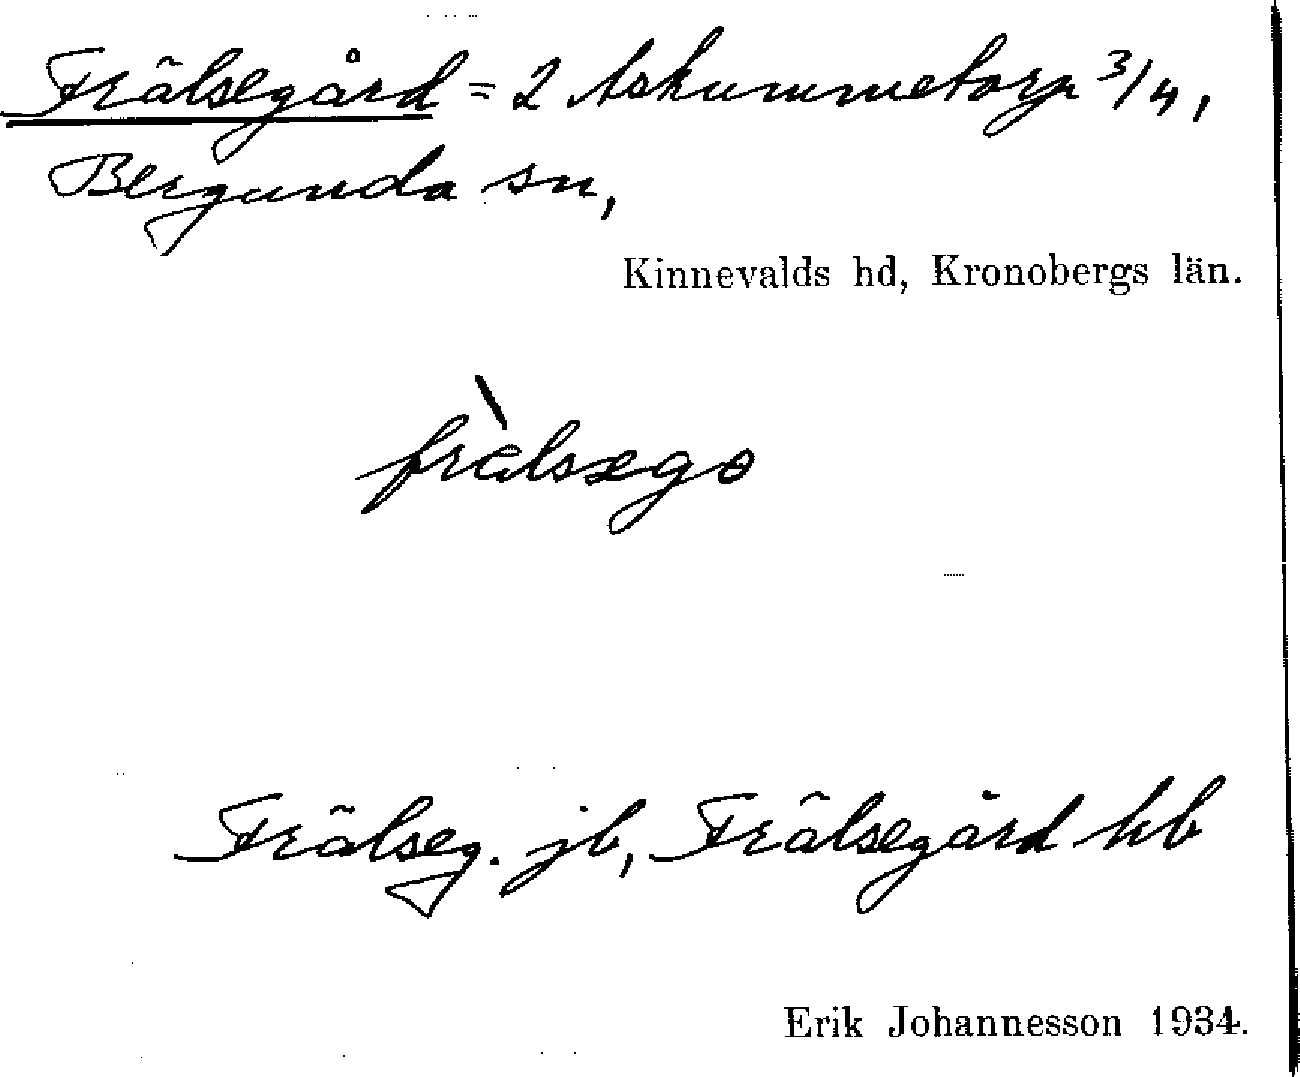 Frälsegård = 2 Askummetorp 3/4,
Bergunda sn,
Kinnevalds hd, Kronobergs län.
frælsægo
Frälseg. jb, Frälsegård hb
Erik Johannesson 1934.